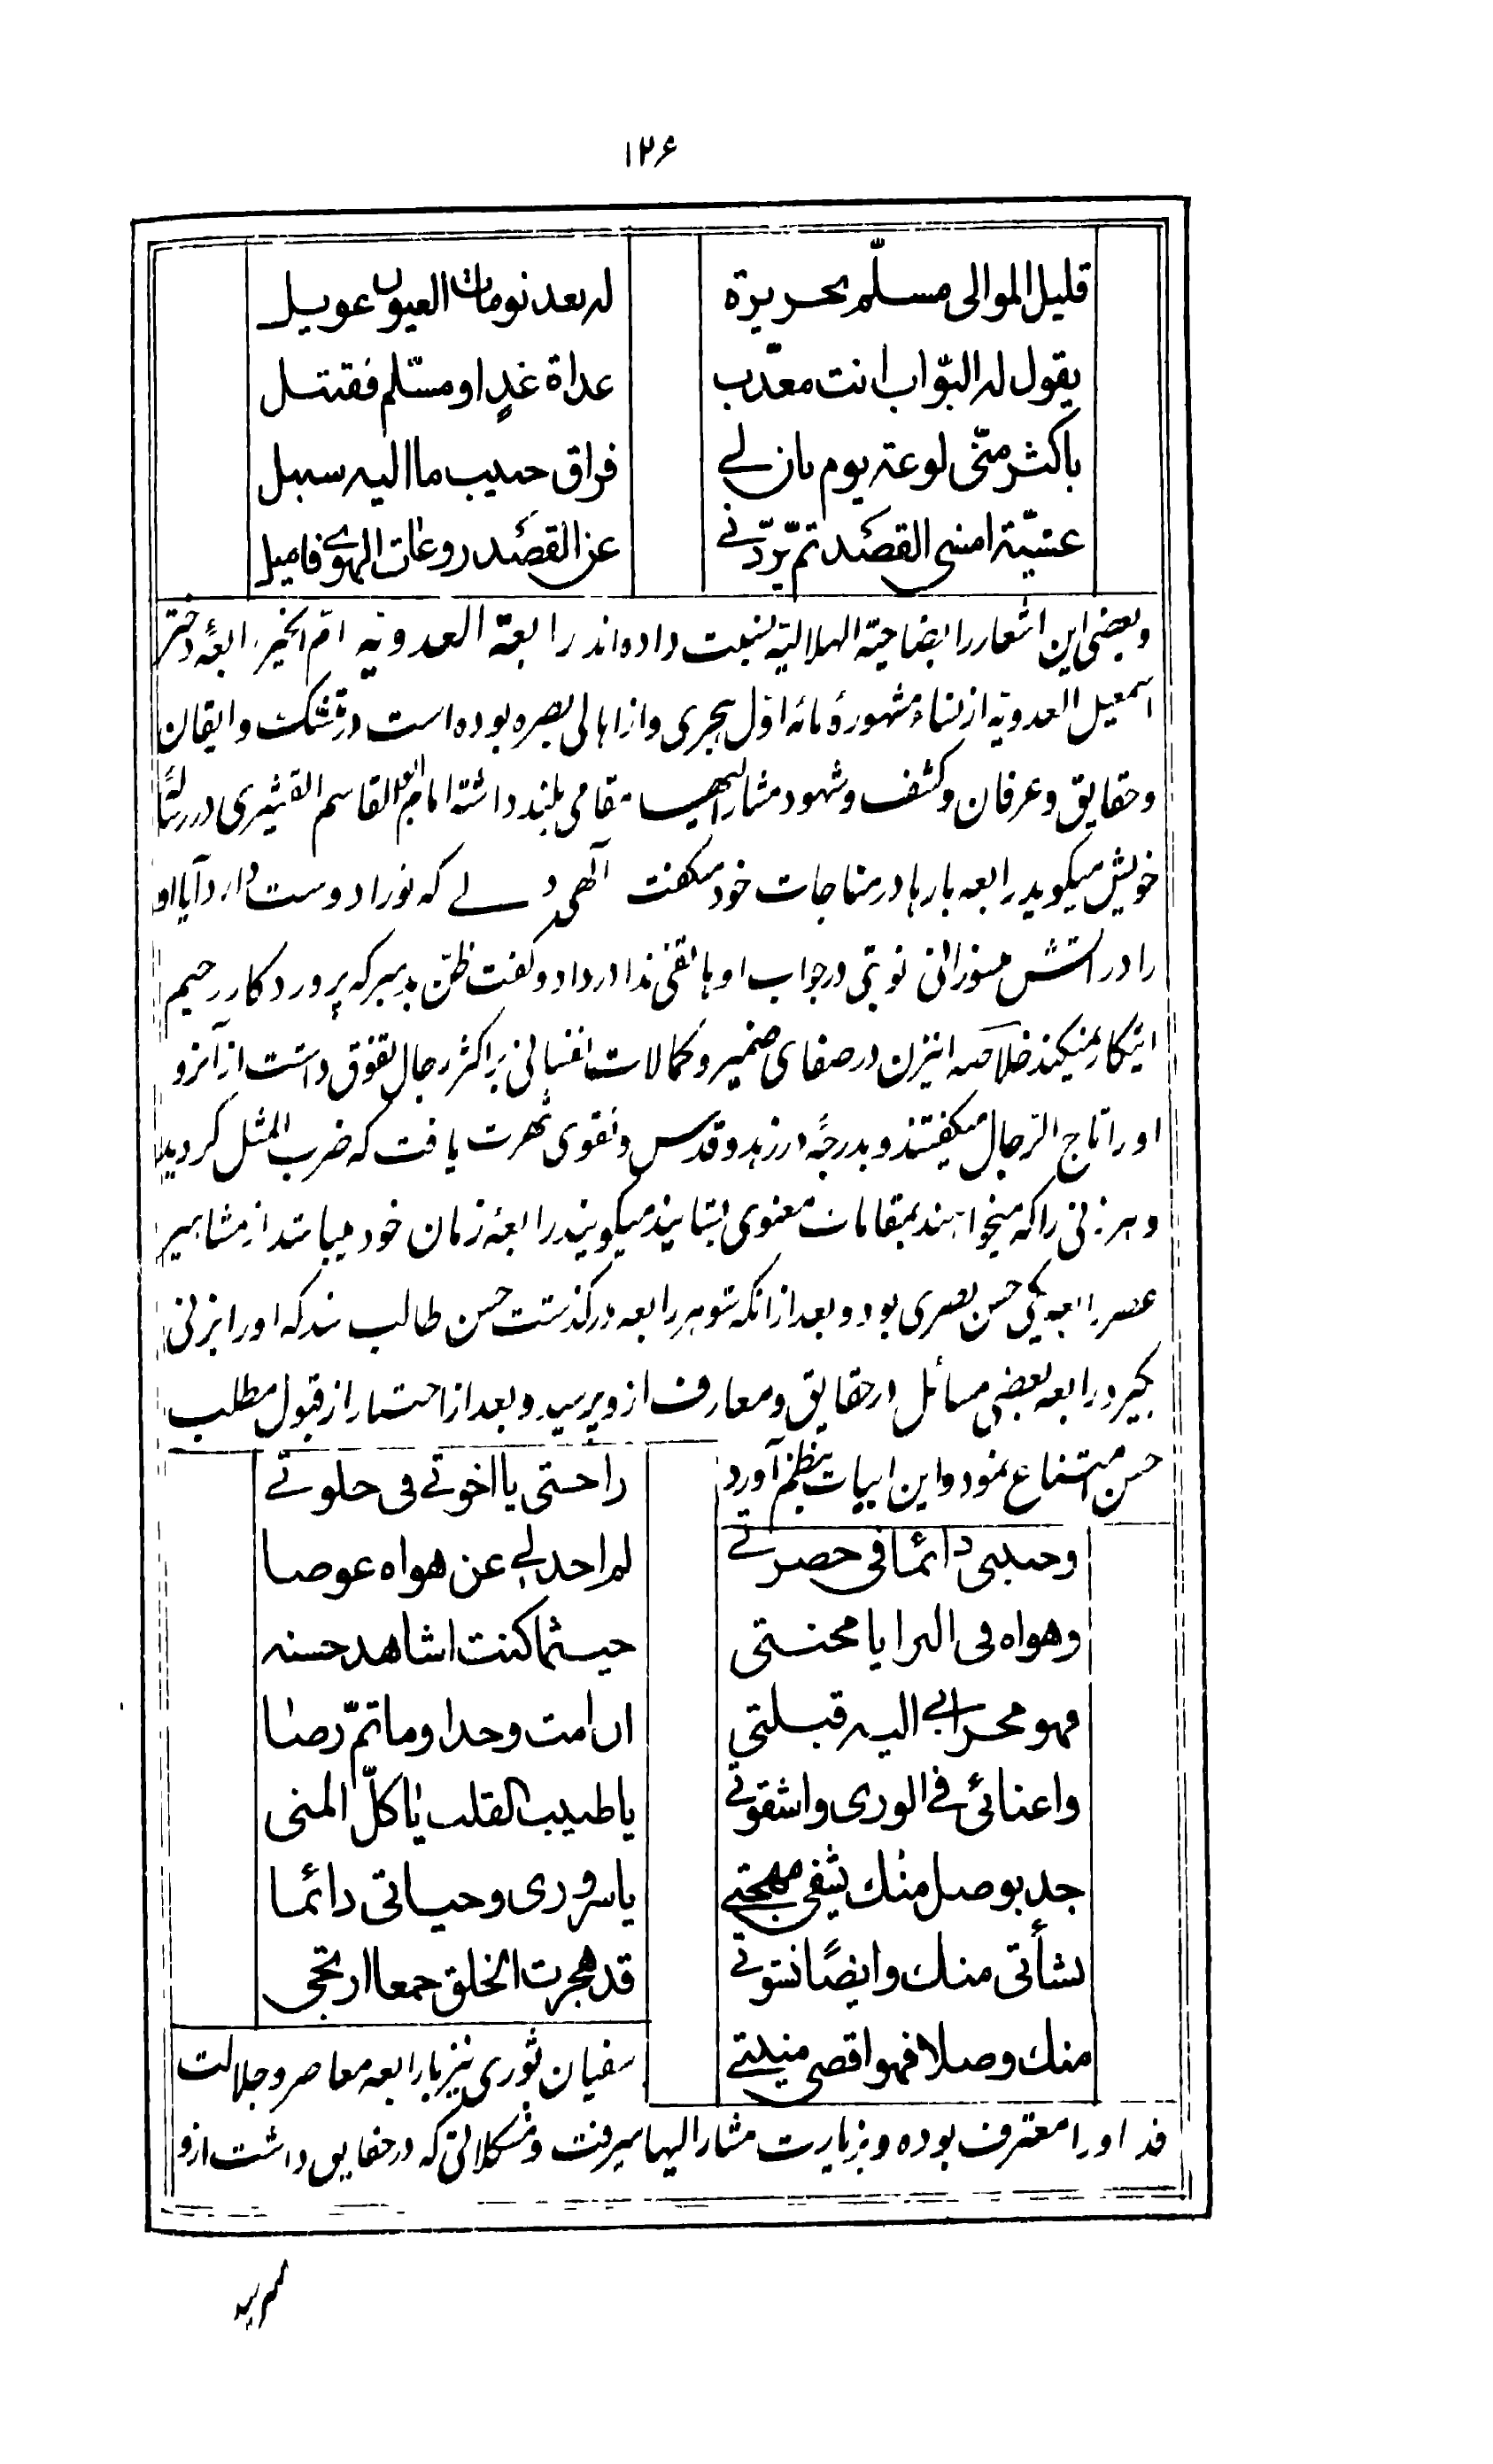 ۱۲۶
قلیل الموالی مسلّم بجریرة له بعد نومات العیون عویل
یقول له البوّاب انت معذّب غداة غدٍ او مسلم فقتیل
باکثر منّی لوعة یوم بان لے فراق حبیب ما الیه سبیل
عشیّة امشی القصد ثمّ یردّنے عن القصد روعات الهوے فامیل
و بعضی این اشعار را بضاحیة الهلالیّه نسبت داده‌اند رابعة العدویه امّ الخیر رابعهٔ دختر
اسمعیل العدویه از نساء مشهورهٔ مائه اوّل هجری و از اهالی بصره بوده است در تنسّک و ایقان
و حقایق و عرفان و کشف و شهود مشار الیها مقامی بلند داشته امام ابو القاسم القشیری در رسالهٔ
خویش میگوید رابعه بارها در مناجات خود میگفت الهی دلے که تو را دوست دارد آیا او
را در آتش میسوزانی نوبتی در جواب او هاتفی ندا در داد و گفت ظنّ بد مبر که پروردگار رحیم
اینکار نمیکند خلاصه اینزن در صفای ضمیر و کمالات نفسانی بر اکثر رجال تفوّق داشت از آنرو
او را تاج الرّجال میگفتند و بدرجهٔ در زهد و قدس و تقوی شهرت یافت که ضرب المثل گردید
و هر زنی را که میخواهند بمقامات معنوی بستایند میگویند رابعهٔ زمان خود میباشد از مشاهیر
عصر رابعه یکی حسن بصری بود و بعد از آنکه شوهر رابعه درگذشت حسن طالب شد که او را بزنی
بگیرد رابعه بعضی مسائل از حقایق و معارف از وی پرسید و بعد از اختبار از قبول مطلب
حسن امتناع نمود و این ابیات بنظم آورد راحتی یا اخوتے فی خلوتے
و حبیبی دائما فی حضرتے لم اجد لی عن هواه عوضا
و هواه فی البرایا محنتی حیثما کنت اشاهد حسنه
فهو محرابی الیه قبلتی ان امت وجدا و ما تمّ رضا
واعنائی فے الوری واشقوتے یا طبیب القلب یا کلّ المنی
جد بوصل منک یشفی مهجتے یا سروری و حیاتی دائما
نشأتی منک و ایضًا نشوتے قد هجرت الخلق جمعا ارتجی
منک وصلا فهو اقصی منیتے سفیان ثوری نیز با رابعه معاصر و جلالت
قدر او را معترف بوده و بزیارت مشار الیها میرفت و مشکلاتی که در حقایق داشت ازو